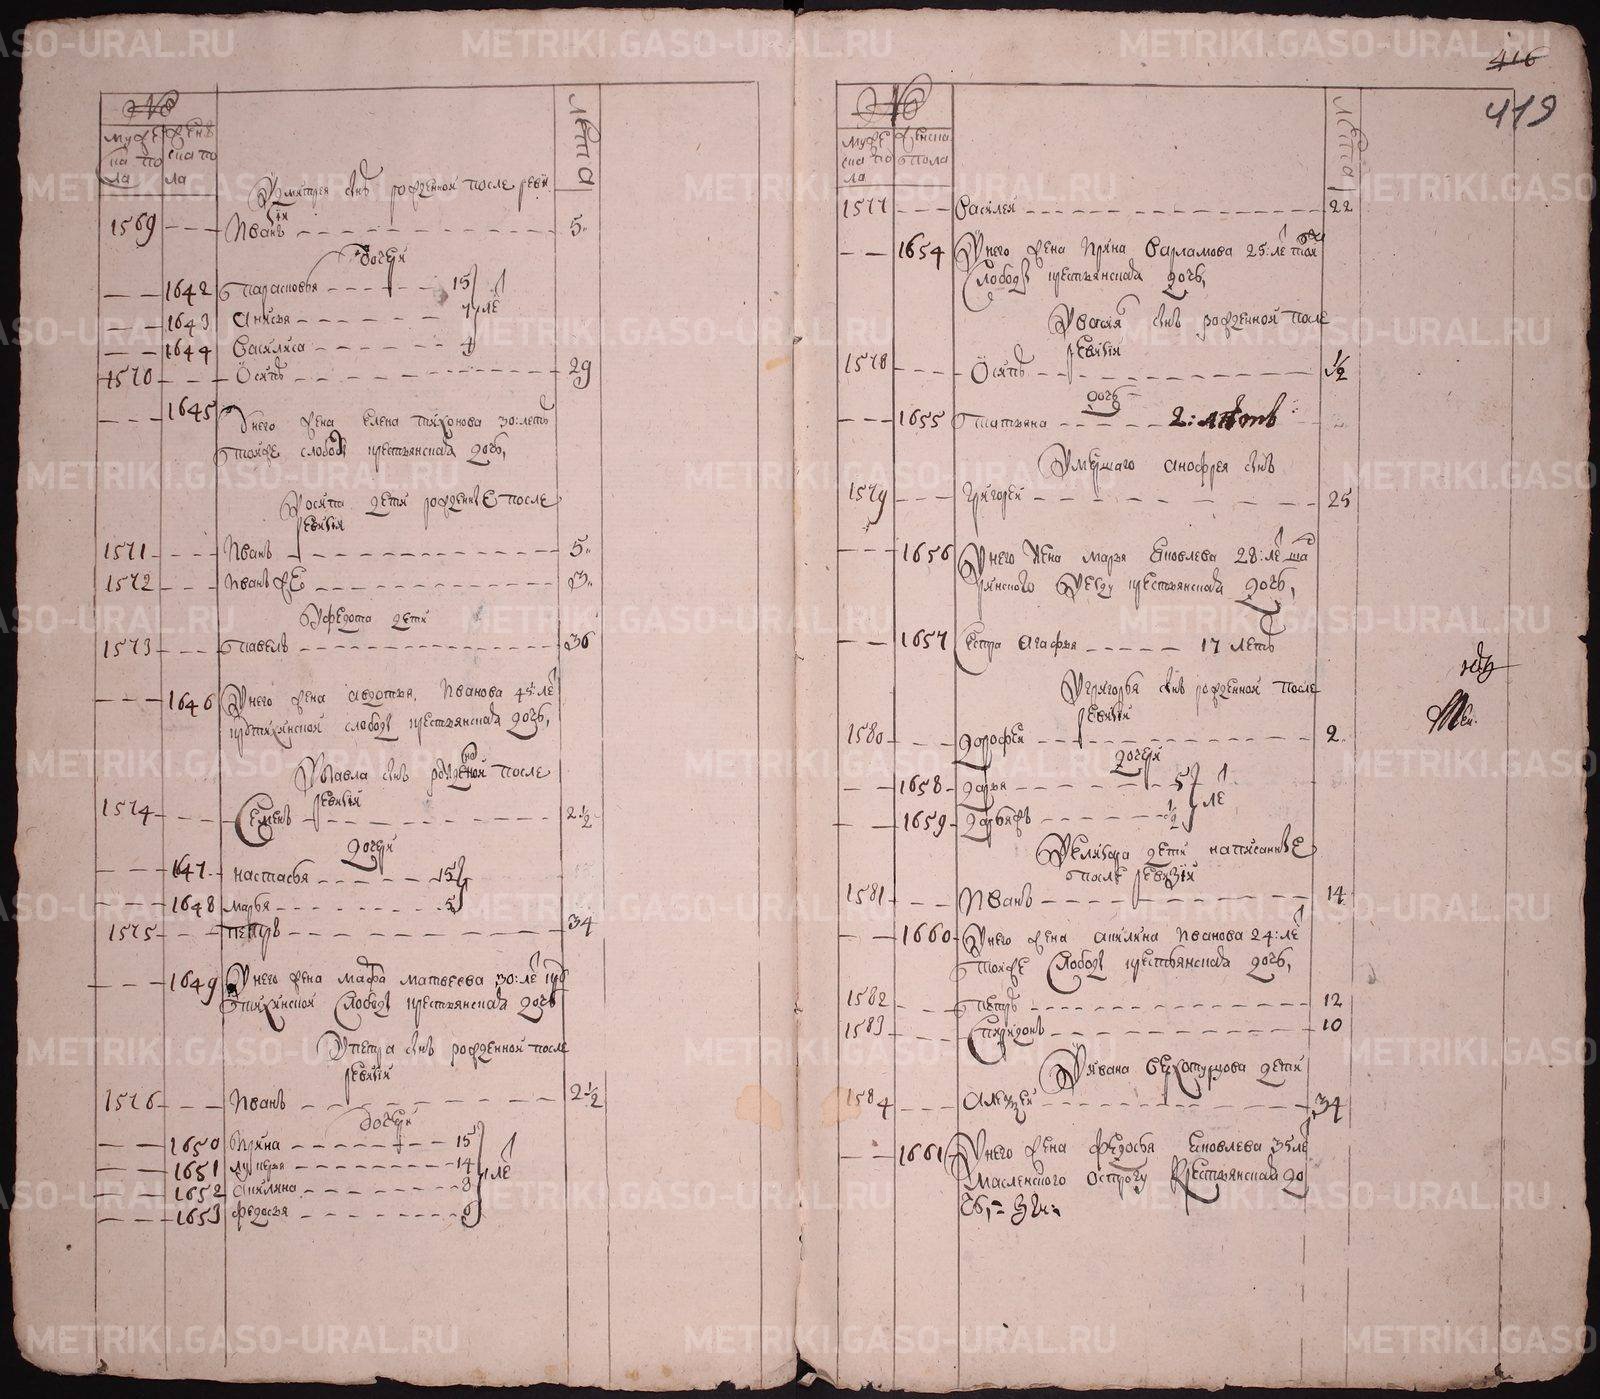 416
419
№
мужеска пола
женска пола
лета
У дмитрея снъ рожденной после реви
зиі
1569 Иванъ 5
дочери
1642 Парасковья 15
1643 Анисья 7 ле
1644 Василиса 4
1570 Осипъ 29
1645 У него жена Елена Тихонова 30: летъ
тояже слободы крестьянская дочь,
У осипа дети рожденные после
ревизиі
1571 Иванъ 5
1572 Иван же 3
У федота дети
1573 Павелъ 36
1646 У него жена авдотья Иванова 45: ле
слободы крестьянская дочь,
У Павла снъ рожденной после
ревизиі
1574 Семенъ 2 1/2
дочери
1647 настасья 15
1648 марья 5
1575 петръ 34
1649 У него жена марфа матвеева 30: ле
слободы крестьянская дочь
У петра снъ рожденной после
ревизиі
1576 Иванъ 2 1/2
дочери
1650 Ирина 15
1651 лукерья 14 ле
1652 Акилина 8
1653 федосья
№
мужеска пола
женска пола
лета
1577 Василей 22
1654 У него жена Ирина Варламова 25: ле тоя
слободы крестьянская дочь,
У Василя снъ рожденной после
ревизиі
1578 Осипъ 1/2
дочь
1655 Татьяна 2: летъ
Умершаго анофрея снъ
1579 Григорей 25
1656 У него жена марья Яковлева 28: ле
уезду крестьянская дочь,
1657 Сестра Агафья 17 летъ
У григорья снъ рожденной после
ревизиі
1580 дорофей 2
дочери
1658 дарья 5 ле
1659 1/2
дети написанные
после ревизиі
1581 Иванъ 14
1660 У него жена акилина Иванова 24: ле
тояже слободы крестьянская дочь,
1582 Петръ 12
1583 Спиридонъ 10
У ивана Верхотурцова дети
1584 Алекзей 34
1661 У него жена федосья Яковлева 35 ле
Масленского острогу крестьянская до
чь,